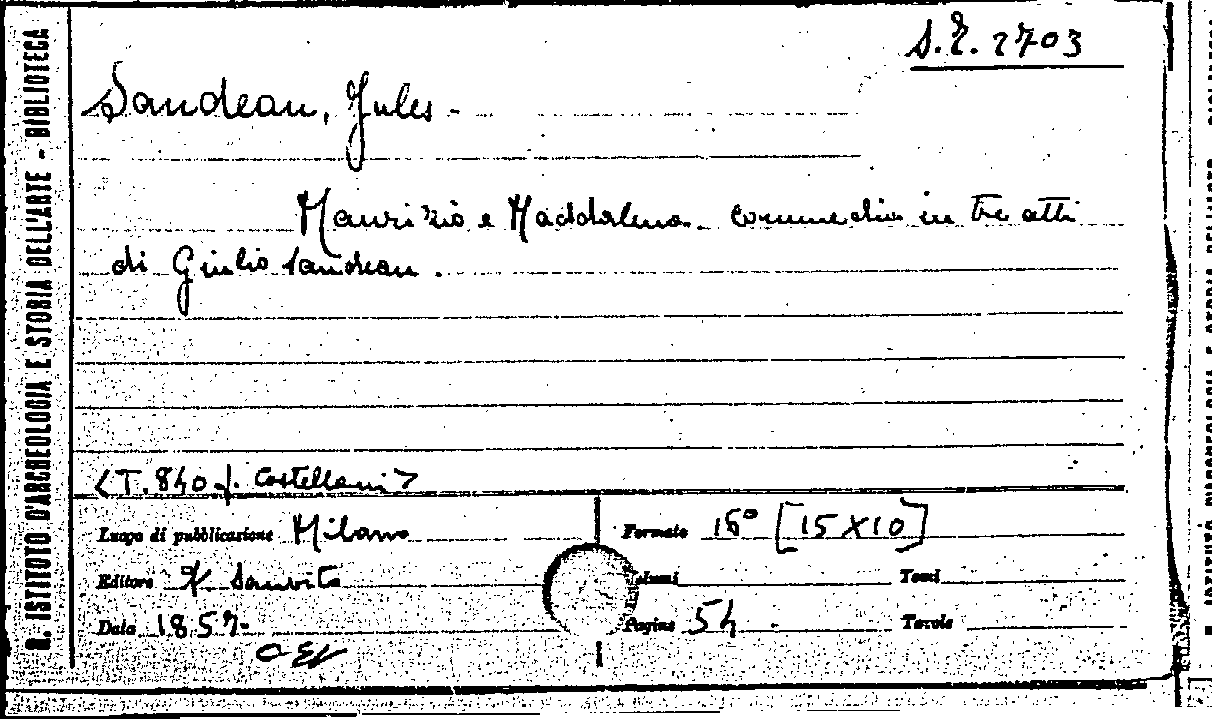 R. ISTITUTO D'ARCHEOLOGIA E STORIA DELL'ARTE - BIBLIOTECA
S.I. 2703
Sandeau, Jules -
Maurizio e Maddalena. Commedia in tre atti
di Giulio Sandeau.
<T. 840 f. Castellani>
Luogo di pubblicazione Milano
Formato 16° [15X10]
Editore Sanvito
Volumi
Tomi
Data 1857-
Pagine 54.
Tavole